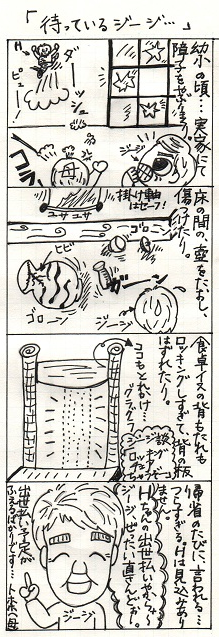 「待っているジージ…」
幼少の頃…実家にて
障子
H
ダーッシュ
ピュー
コラ
母
床の間の、壺をたおし、
傷付けたり。
掛け軸はセーフ!
ユサ ユサ
コロ
ガーン
ヒビ
ゴローン
ジージ
食卓イスの背もたれも
ロッキングしすぎて、背の板
はずれたり。
ココもとれかけ…
グラグラ
ジージ談
帰省のたびに、言われる…
つらすぎる。Hは見込みあり
ません。
Hちゃんの出世払いやから〜
ジージ、ぜったい直さんぞ。
ジージ
出世払い予定が
ふえるばかりです…